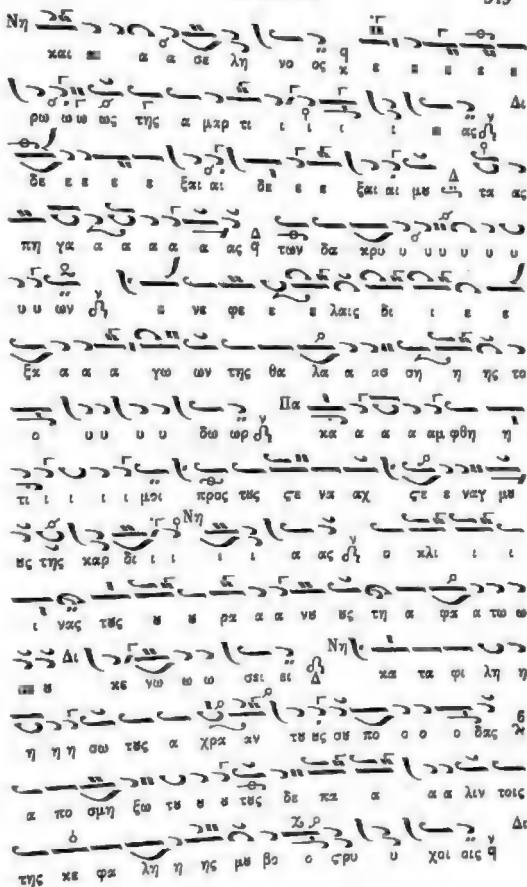 Νη και α α σε λη νο ος κ ε ε ε ε ε
ρω ω ω ως της α μαρ τι ι ι ι ι ας Δι
δε ε ε ε ε ξαι αι δε ε ε ξαι αι μȣ Δ τα ας
πη γα α α α α α ας Δ των δα κρυ υ υ υ υ υ υ
υ υ ων ο νε φε ε ε λαις δι ι ε ε
ξα α α α γω ων της θα λα α ασ ση η ης το
ο υυ υ υ δω ωρ Πα κα α α α αμ φθη η
τι ι ι ι ι μοι προς τȣς ϛε να αχ ϛε ε ναγ μȣ
ȣς της καρ δι ι ι Νη ι ι α ας ο κλι ι ι
ι νας τȣς ȣ ȣ ρα α α νȣ ȣς τη α φα α τω ω
ȣ Δι κε νω ω ω σει ει Δ Νη κα τα φι λη η
η η η σω τȣς α χρα αν τȣ ȣς σȣ πο ο ο ο δας
α πο σμη ξω τȣ ȣ ȣ τȣς δε πα α α α λιν τοις
της κε φα λη η ης μȣ βο ο ϛρυ υ χοι οις Δι